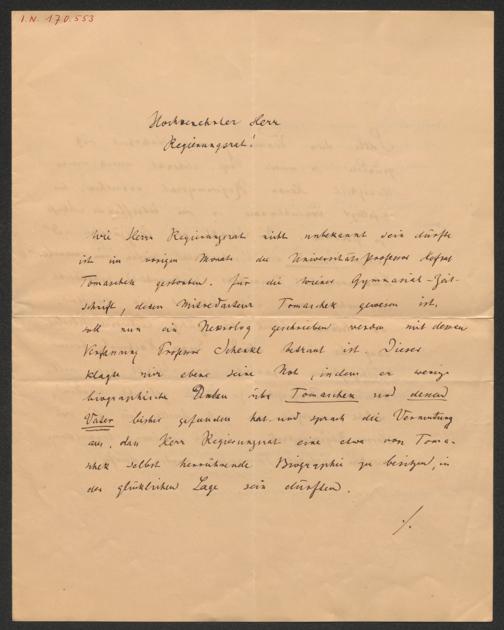 I.N. 170.553
Hochverehrter Herr
Regierungsrat!
Wie Herrn Regierungsrat nicht unbekannt sein dürfte
ist im vorigen Monate der Universitäts-Professor Hofrat
Tomaschek gestorben. Für die Wiener Gymnasial-Zeit-
schrift, deren Mitredacteur Tomaschek gewesen ist,
soll nun ein Nekrolog geschrieben werden mit dessen
Verfassung Professor Schenkl betraut ist. Dieser
klagte mir eben seine Not, indem er wenige
biographische Daten über Tomaschek und dessen
Vater bisher gefunden hat und sprach die Vermutung
aus, dass Herr Regierungsrat eine etwa von Toma-
schek selbst herrührende Biographie zu besitzen, in
der glücklichen Lage sein dürften.
./.